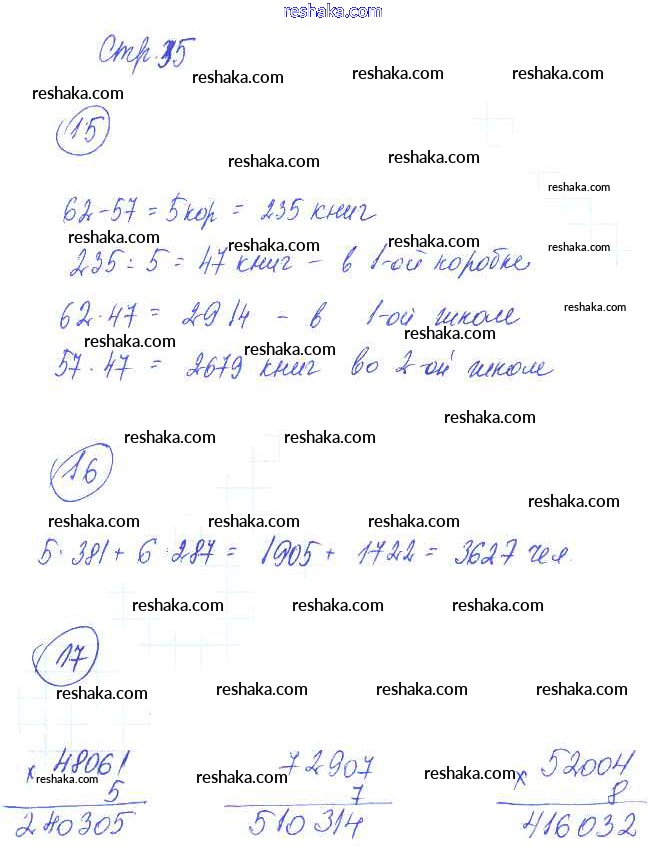 reshaka.com
Стр. 35
reshaka.com reshaka.com reshaka.com reshaka.com
15
reshaka.com reshaka.com
reshaka.com
62-57 = 5 кор = 235 книг
reshaka.com reshaka.com reshaka.com reshaka.com
235 : 5 = 47 книг - в 1-ой коробке
reshaka.com
62 · 47 = 2914 - в 1-ой школе
reshaka.com reshaka.com reshaka.com
57 · 47 = 2679 книг во 2-ой школе
reshaka.com
reshaka.com reshaka.com
16
reshaka.com
reshaka.com reshaka.com reshaka.com
5 · 381 + 6 · 287 = 1905 + 1722 = 3627 чел.
reshaka.com reshaka.com reshaka.com
17
reshaka.com reshaka.com reshaka.com reshaka.com
× 48061 72907 × 52004
reshaka.com reshaka.com reshaka.com
5 7 8
240305 510314 416032